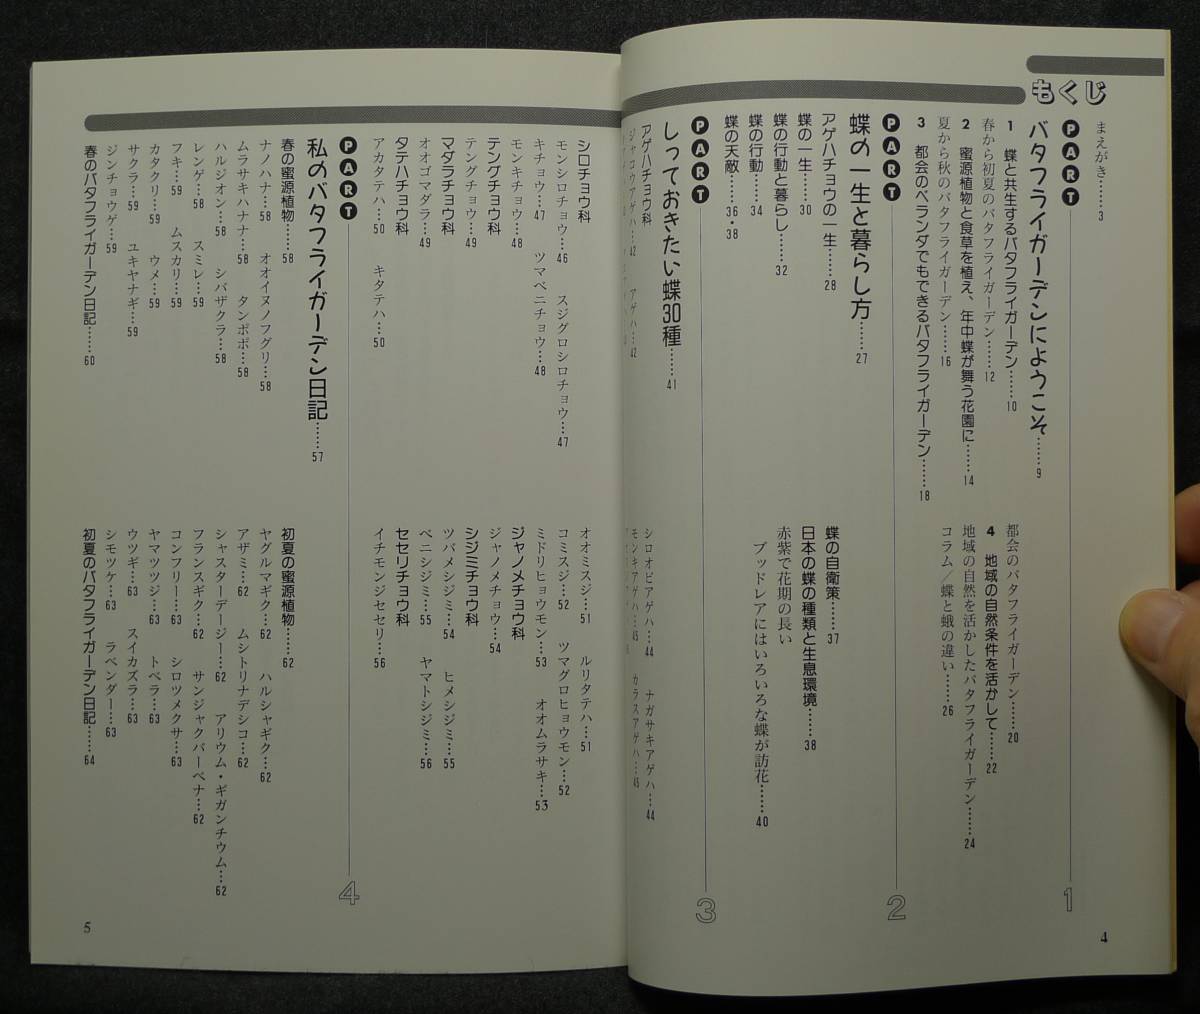 もくじ
まえがき……3
PART 1
バタフライガーデンにようこそ……9
1 蝶と共生するバタフライガーデン……10
春から初夏のバタフライガーデン……12
2 蜜源植物と食草を植え、年中蝶が舞う花園に……14
夏から秋のバタフライガーデン……16
3 都会のベランダでもできるバタフライガーデン……18
都会のバタフライガーデン……20
4 地域の自然条件を活かして……22
地域の自然を活かしたバタフライガーデン……24
コラム／蝶と蛾の違い……26
PART 2
蝶の一生と暮らし方……27
アゲハチョウの一生……28
蝶の一生……30
蝶の行動と暮らし……32
蝶の行動……34
蝶の天敵……36・38
蝶の自衛策……37
日本の蝶の種類と生息環境……38
赤紫で花期の長い
ブッドレアにはいろいろな蝶が訪花……40
PART 3
しっておきたい蝶30種……41
アゲハチョウ科
ジャコウアゲハ…42 アゲハ…42
シロオビアゲハ…44 ナガサキアゲハ…44
モンキアゲハ…45 カラスアゲハ…45
シロチョウ科
モンシロチョウ…46 スジグロシロチョウ…47
キチョウ…47 ツマベニチョウ…48
モンキチョウ…48
テングチョウ科
テングチョウ…49
マダラチョウ科
オオゴマダラ…49
タテハチョウ科
アカタテハ…50 キタテハ…50
オオミスジ…51 ルリタテハ…51
コミスジ…52 ツマグロヒョウモン…52
ミドリヒョウモン…53 オオムラサキ…53
ジャノメチョウ科
ジャノメチョウ…54
シジミチョウ科
ツバメシジミ…54 ヒメシジミ…55
ベニシジミ…55 ヤマトシジミ…56
セセリチョウ科
イチモンジセセリ…56
PART 4
私のバタフライガーデン日記……57
春の蜜源植物……58
ナノハナ…58 オオイヌノフグリ…58
ムラサキハナナ…58 タンポポ…58
ハルジオン…58 シバザクラ…58
レンゲ…58 スミレ…59
フキ…59 ムスカリ…59
カタクリ…59 ウメ…59
サクラ…59 ユキヤナギ…59
ジンチョウゲ…59
春のバタフライガーデン日記……60
初夏の蜜源植物……62
ヤグルマギク…62 ハルシャギク…62
アザミ…62 ムシトリナデシコ…62
シャスターデージー…62 アリウム・ギガンチウム…62
フランスギク…62 サンジャクバーベナ…62
コンフリー…63 シロツメクサ…63
ヤマツツジ…63 トベラ…63
ウツギ…63 スイカズラ…63
シモツケ…63 ラベンダー…63
初夏のバタフライガーデン日記……64
4
5